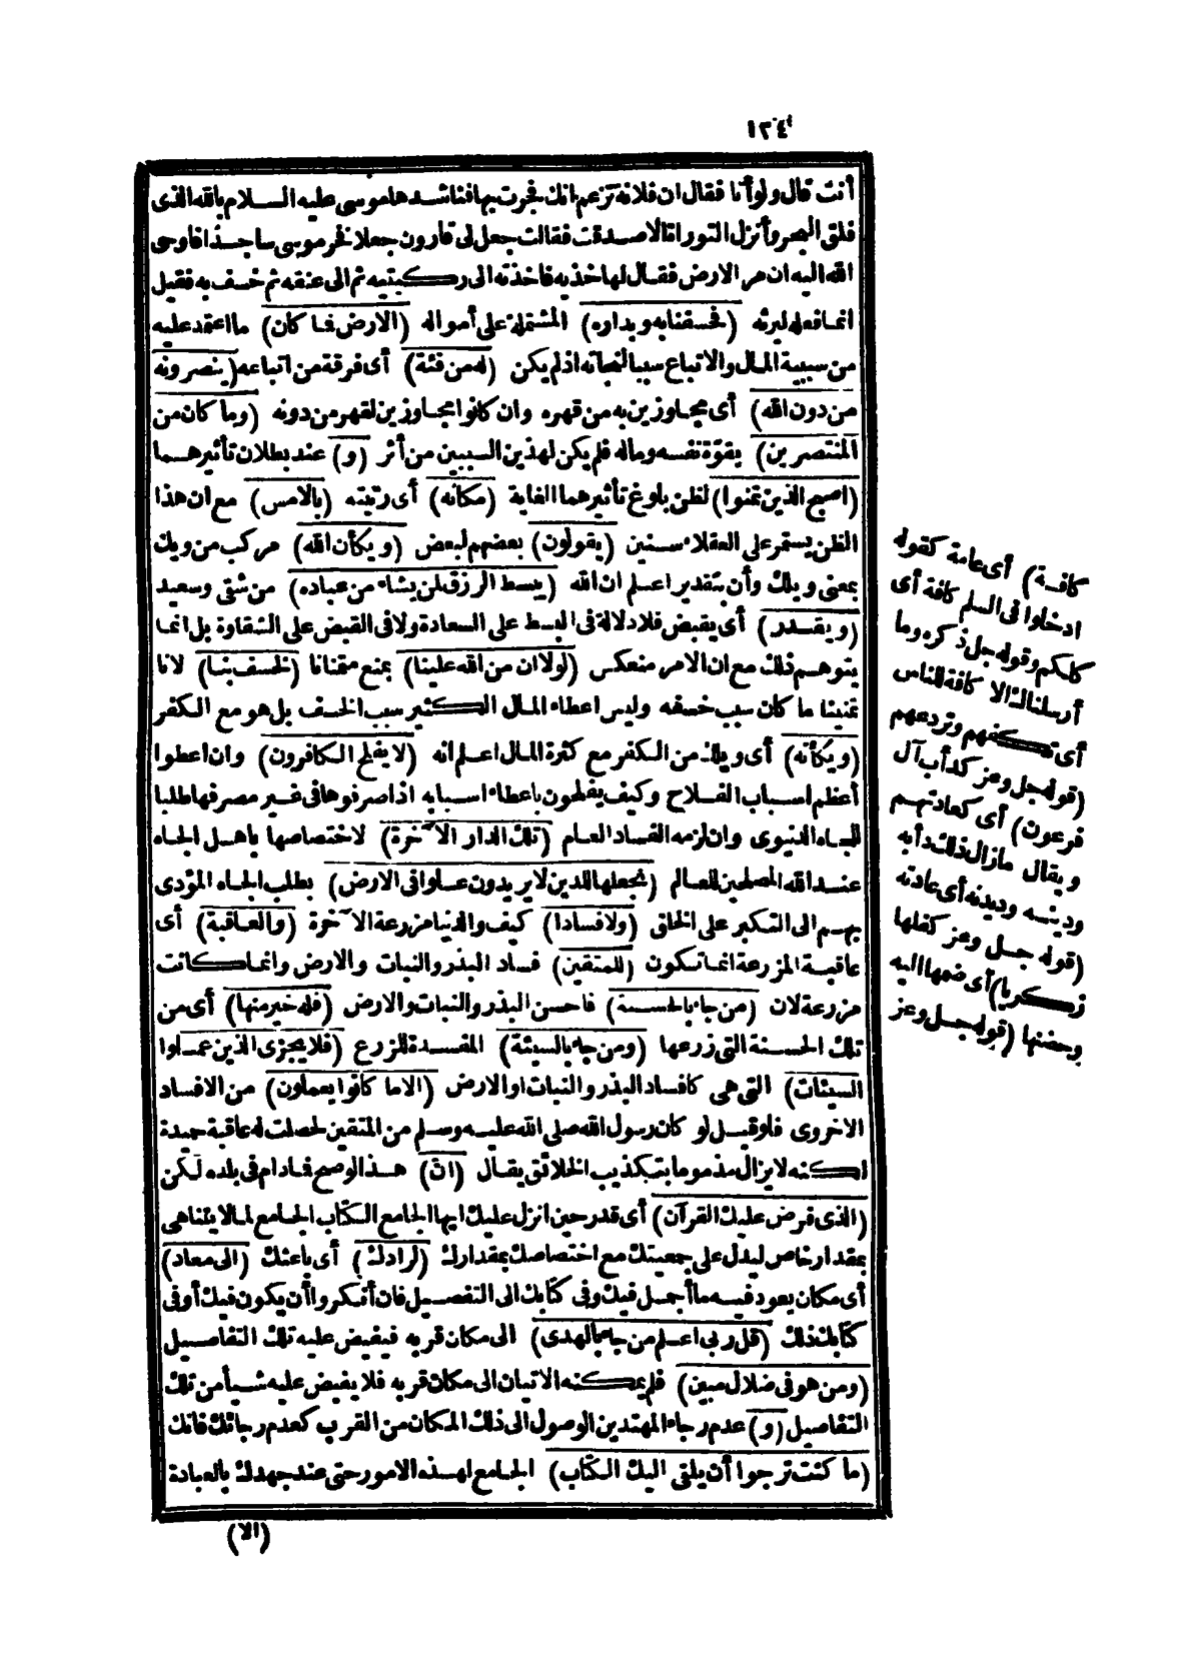 ١٢٤
أنت قال ولو أنا فقال ان فلانة تزعم انك فجرت بها فناشدها موسى عليه السلام بالله الذى
فلق البحر وأنزل التوراة الا صدقت فقالت جعل لى قارون جعلا فخر موسى ساجدا فاوحى
الله اليه ان مر الارض فقال لها خذيه فاخذته الى ركبتيه ثم الى عنقه ثم خسف به فقيل
انما فعله ليرثه (فخسفنا به وبداره) المشتملة على أمواله (الارض فما كان) ما اعتمد عليه
من سببية المال والاتباع سببا لنجاته اذ لم يكن (له من فئة) أى فرقة من اتباعه (ينصرونه
من دون الله) أى مجاوزين به من قهره وان كانوا مجاوزين لقهر من دونه (وما كان من
المنتصرين) بقوّة نفسه وماله فلم يكن لهذين السببين من أثر (و) عند بطلان تأثيرهما
(اصبح الذين تمنوا) لظن بلوغ تأثيرهما الغاية (مكانه) أى رتبته (بالامس) مع ان هذا
الظن يستمر على العقلاء سنين (يقولون) بعضهم لبعض (ويكأن الله) مركب من ويك
بمعنى ويلك وأن بتقدير اعلم ان الله (يبسط الرزق لمن يشاء من عباده) من شقى وسعيد
(ويقدر) أى يقبض فلا دلالة فى البسط على السعادة ولا فى القبض على الشقاوة بل انما
يتوهم ذلك مع ان الامر منعكس (لولا ان من الله علينا) بمنع متمنانا (لخسف بنا) لانا
تمنينا ما كان سبب خسفه وليس اعطاء المال الكثير سبب الخسف بل هو مع الكفر
(ويكأنه) أى ويلك من الكفر مع كثرة المال اعلم انه (لا يفلح الكافرون) وان اعطوا
أعظم اسباب الفلاح وكيف يفلحون باعطاء اسبابه اذا صرفوها فى غير مصرفها طلبا
للجاه الدنيوى وان لزمه الفساد العام (تلك الدار الآخرة) لاختصاصها باهل الجاه
عند الله المصلحين للعالم (نجعلها للذين لا يريدون علوا فى الارض) بطلب الجاه المؤدى
بهم الى التكبر على الخلق (ولا فسادا) كيف والدنيا مزرعة الآخرة (والعاقبة) أى
عاقبة المزرعة انما تكون (للمتقين) فساد البذر والنبات والارض وانما كانت
مزرعة لان (من جاء بالحسنة) فاحسن البذر والنبات والارض (فله خير منها) أى من
تلك الحسنة التى زرعها (ومن جاء بالسيئة) المفسدة للزرع (فلا يجزى الذين عملوا
السيئات) التى هى كافساد البذر والنبات او الارض (الا ما كانوا يعملون) من الافساد
الاخروى فلو قيل لو كان رسول الله صلى الله عليه وسلم من المتقين لحصلت له عاقبة حميدة
لكنه لا يزال مذموما بتكذيب الخلائق يقال (ان) هذا لو صح فما دام فى بلده لكن
(الذى فرض عليك القرآن) أى قدر حين انزل عليك ايها الجامع الكتاب الجامع لما لا يتناهى
بمقدار خاص ليدل على جمعيتك مع اختصاصك بمقدارك (لرادك) أى باعثك (الى معاد)
أى مكان يعود فيه ما أجمل فيك وفى كتابك الى التفصيل فان أنكروا أن يكون فيك أو فى
كتابك ذلك (قل ربى اعلم من جاء بالهدى) الى مكان قربه فيفيض عليه تلك التفاصيل
(ومن هو فى ضلال مبين) فلم يمكنه الاتيان الى مكان قربه فلا يفيض عليه شيأ من تلك
التفاصيل (و) عدم رجاء المهتدين الوصول الى ذلك المكان من القرب كعدم رجائك فانك
(ما كنت ترجوا أن يلقى اليك الكتاب) الجامع لهذه الامور حتى عند جهدك بالعبادة
(الا)
كافة) أى عامة كقوله
ادخلوا فى السلم كافة أى
كلكم وقوله جل ذكره وما
أرسلناك الا كافة للناس
أى تكفهم وتردعهم
(قوله جل وعز كدأب آل
فرعون) أى كعادتهم
ويقال ما زال ذلك دأبه
ودينه وديدنه أى عادته
(قوله جل وعز كفلها
زكريا) أى ضمها اليه
وحضنها (قوله جل وعز